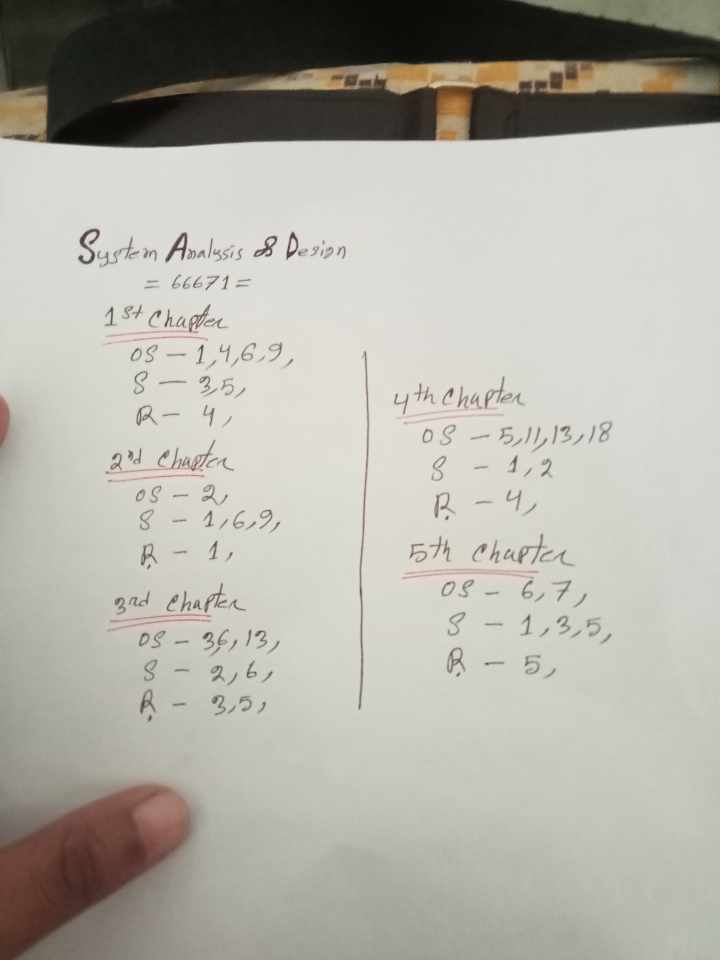 System Analysis & Design
= 66671 =
1st Chapter
OS - 1,4,6,9,
S - 3,5,
R - 4,
2nd Chapter
OS - 2,
S - 1,6,9,
R - 1,
3rd Chapter
OS - 3,6,13,
S - 2,6,
R - 3,5,
4th Chapter
OS - 5,11,13,18
S - 1,2
R - 4,
5th Chapter
OS - 6,7,
S - 1,3,5,
R - 5,